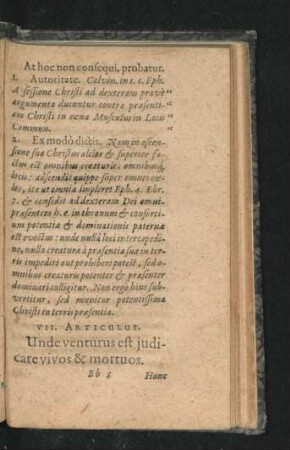 At hoc non consequi, probatur.
1. Autoritate. Calvin. in 1. c. Eph.
A sessione Christi ad dexteram pravè
argumenta ducuntur contra præsenti-
am Christi in cœna Musculus in Locis
Commun.
2. Ex modò dictis. Nam in ascen-
sione sua Christus altior & superior fa-
ctus est omnibus creaturis, omnibusq;
locis: adscendit quippe super omnes cœ-
los, ita ut omnia impleret Eph. 4. Ebr.
7. & consedit ad dexteram Dei omni-
præsentem h. e. in thronum & consorti-
um potentiæ & dominationis paternæ
est evectus: unde nullâ loci intercapedi-
ne, nulla creatura à præsentia sua in ter-
ris impediri aut prohiberi potest, sed o-
mnibus creaturis potenter & præsenter
dominari colligitur. Non ergò hinc sub-
vertitur, sed munitur potentissimè
Christi in terris præsentia.
VII. ARTICULUS.
Unde venturus est judi-
care vivos & mortuos.
Bb 5 Hunc